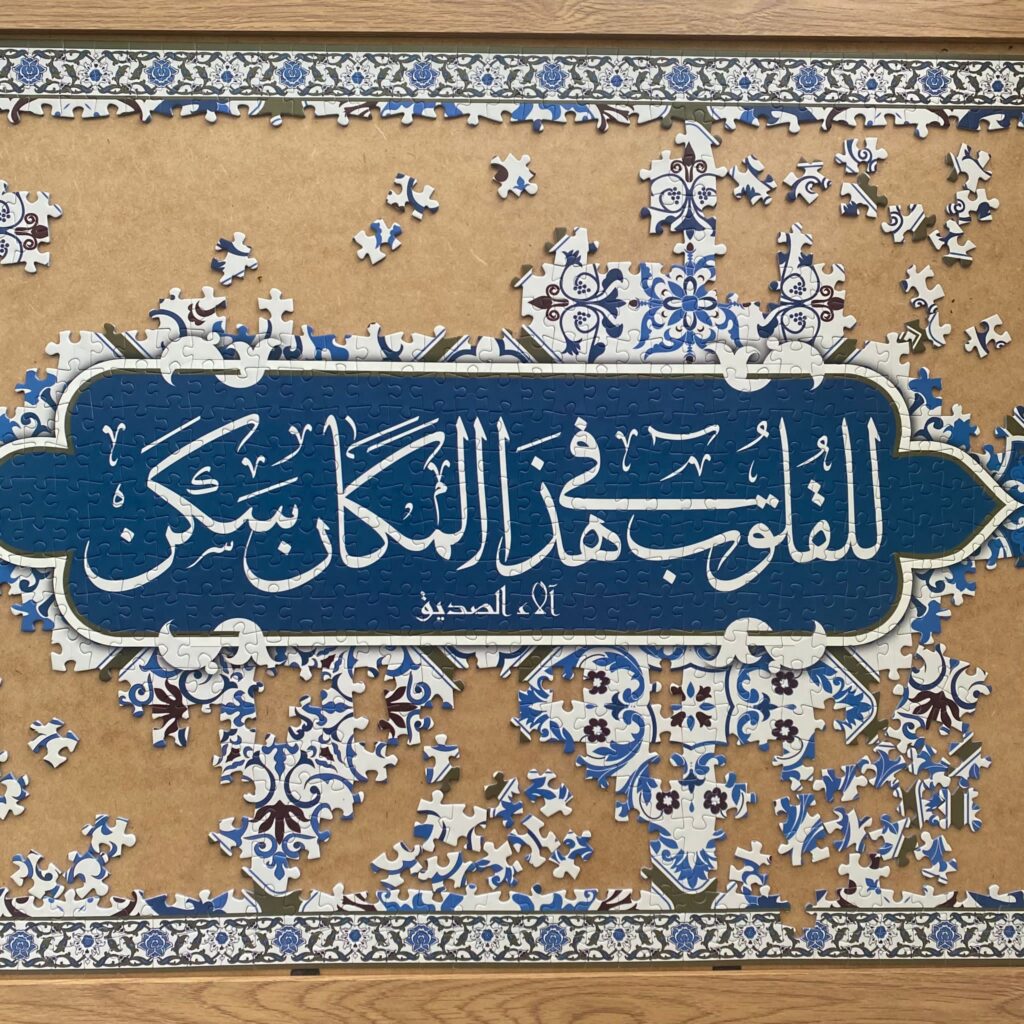 للقُلُوبِ في هٰذَا المَكَانِ سَكَنٌ
آلاء الصديق